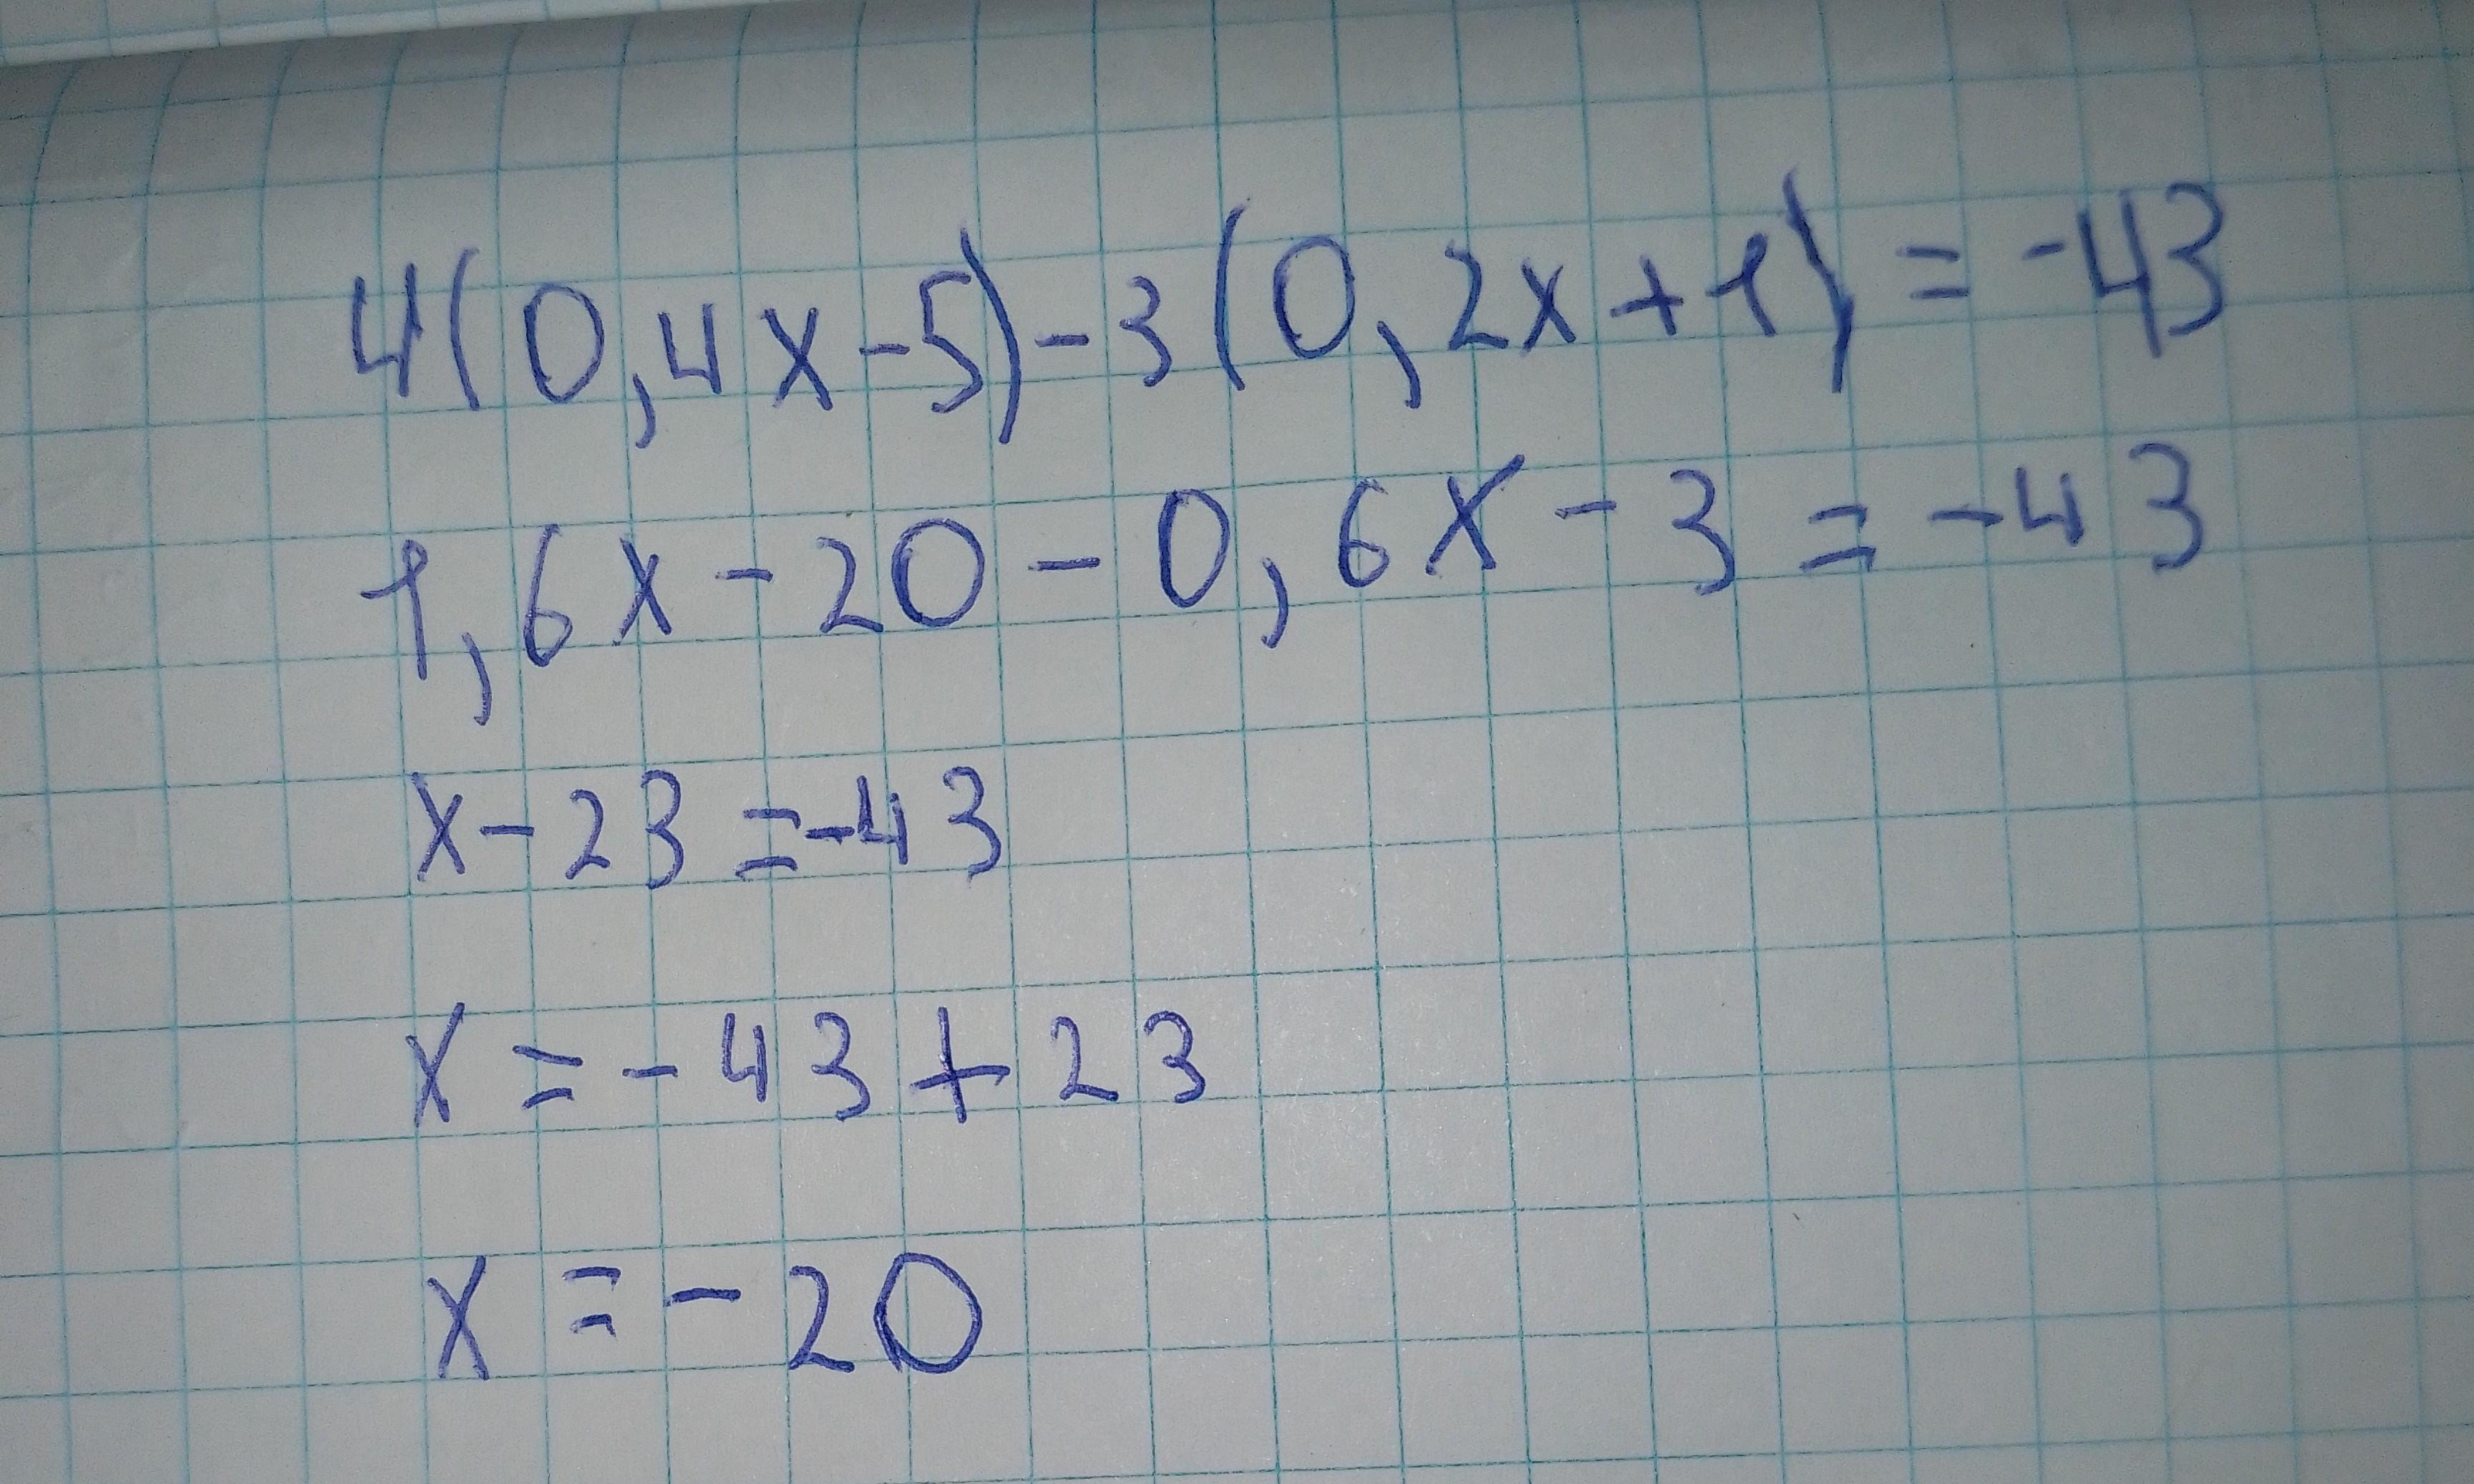 4(0,4x-5)-3(0,2x+1)=-43
1,6x-20-0,6x-3=-43
x-23=-43
x=-43+23
x=-20